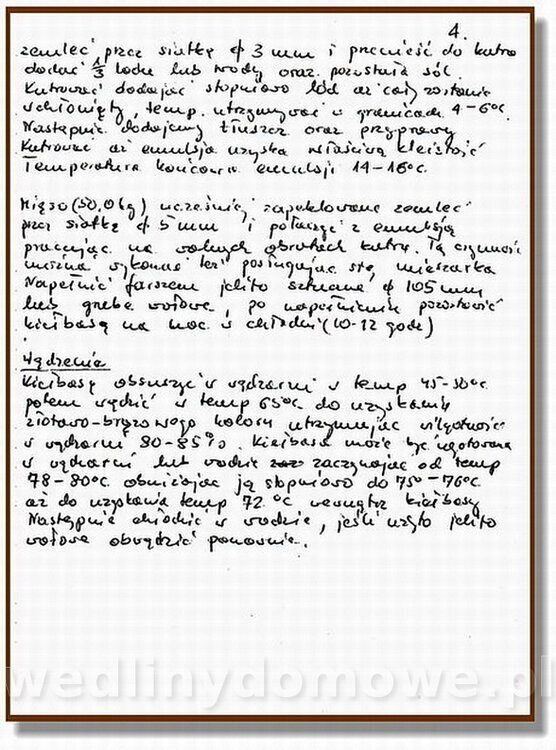 4.
zemleć przez siatkę ϕ 3 mm i przenieść do kutra
dodać 1/3 lodu lub wody oraz pozostałą sól.
Kutrować dodając stopniowo lód aż cały zostanie
wchłonięty, temp. utrzymywać w granicach 4-6°c.
Następnie dodajemy tłuszcz oraz przyprawy
kutrować aż emulsja uzyska właściwą kleistość
Temperatura końcowa emulsji 14-16°c.
Mięso (50,0 kg) wcześniej zapeklowane zemleć
przez siatkę ϕ 5 mm i połączyć z emulsją
pracując na wolnych obrotach kutra. Tą czynność
można wykonać też posługując się mieszarką
Napełnić farszem jelito sztuczne ϕ 105 mm
lub grube wołowe, po napełnieniu pozostawić
kiełbasę na noc w chłodni (10-12 godz)
Wędzenia
Kiełbasę obsuszyć w wędzarni w temp 45-50°c.
potem wędzić w temp 65°c. do uzyskania
złotawo-brązowego koloru utrzymując wilgotność
w wędzarni 80-85%. Kiełbasa może być ugotowana
w wędzarni lub wodzie zaczynając od temp
78-80°c. obniżając ją stopniowo do 75°-76°c.
aż do uzyskania temp 72 °c wewnątrz kiełbasy
Następnie chłodzić w wodzie, jeśli użyto jelito
wołowe obwędzić ponownie.
wedlinydomowe.pl